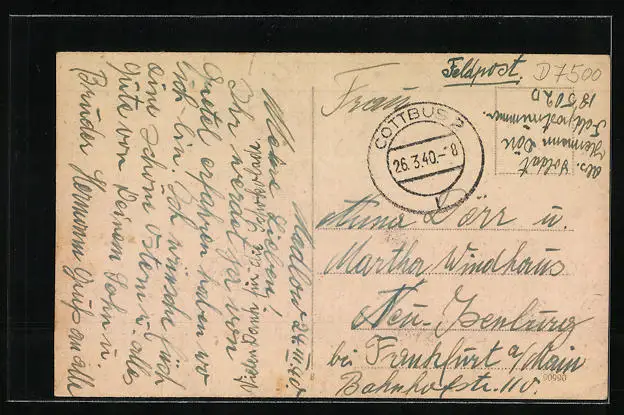 Feldpost.
D 7500
Abs. Soldat
Hermann Dörr
Feldpostnummer
18502 D
COTTBUS 2
26.3.40.-18
Frau
Anna Dörr u.
Martha Windhaus
Neu-Isenburg
bei Frankfurt a/Main
Bahnhofstr. 110.
06600
Madlow 24.III.40
Meine Lieben!
Ihr werdet ja von
Gretel erfahren haben wo
ich bin. Ich wünsche Euch
eine schöne Ostern u. alles
Gute von Deinem Sohn u.
Bruder Hermann Gruß an alle